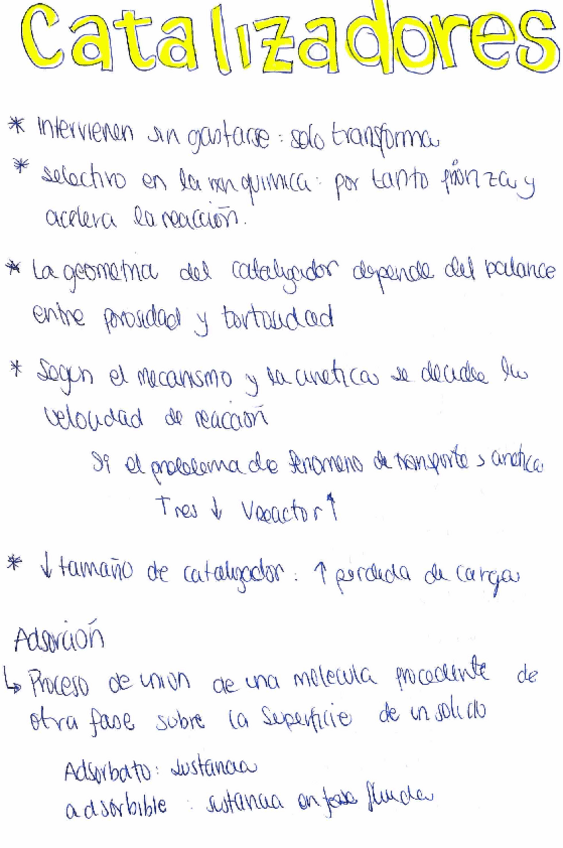 Catalizadores
* Intervienen sin gastarse: solo transforma
* selectivo en la rxn quimica: por tanto prioriza y
acelera la reacción.
* La geometria del catalizador depende del balance
entre porosidad y tortuosidad
* Según el mecanismo y la cinetica se decide la
velocidad de reacción
Si el problema de fenomeno de transporte > cinetica
Tres ↓ Vreactor ↑
* ↓ tamaño de catalizador: ↑ perdida de carga
Adsorción
↳ Proceso de union de una molecula procedente de
otra fase sobre la superficie de un solido
Adsorbato: sustancia
adsorbible: sustancia en fase fluida